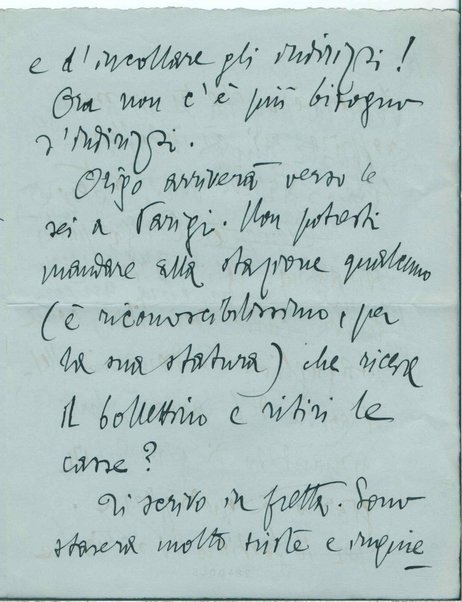 e d'incollare gli indirizzi!
Ora non c'è più bisogno
d'indirizzi.
Origo arriverà verso le
sei a Parigi. Non potresti
mandare alla stazione qualcuno
(è riconoscibilissimo, per
la sua statura) che riceva
il bollettino e ritiri le
casse?
Ti scrivo in fretta. Sono
stasera molto triste e inquie